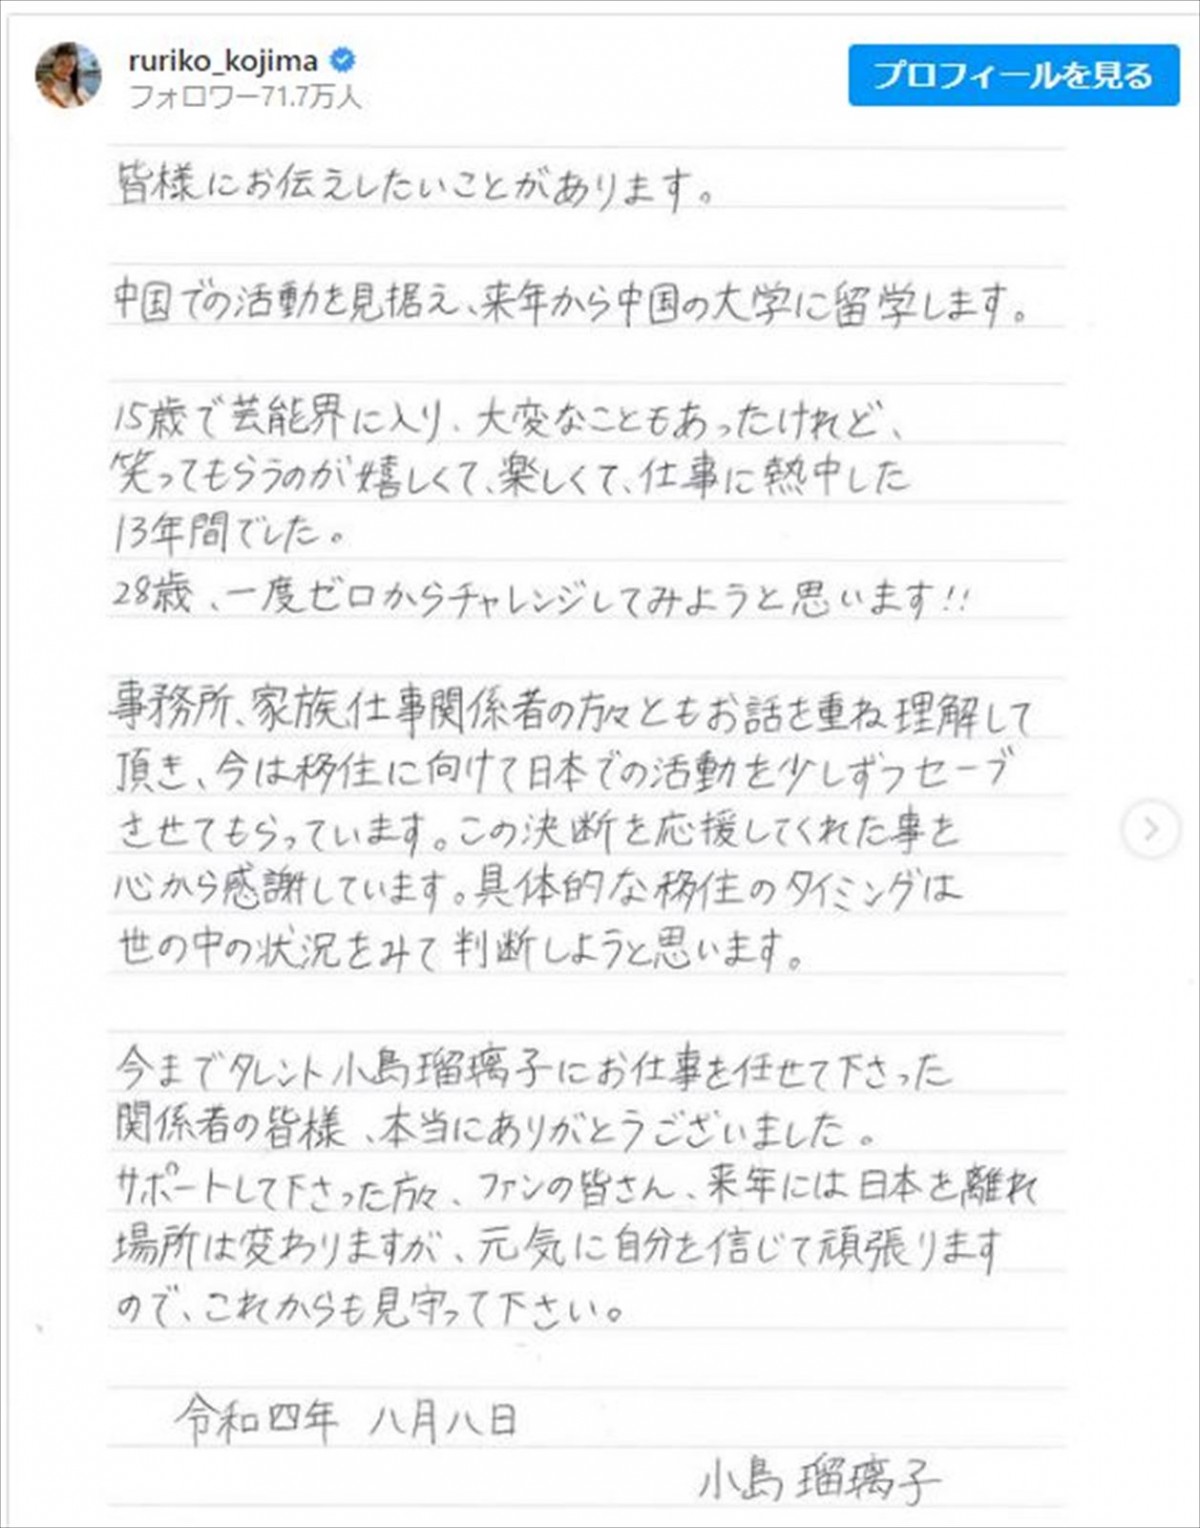 ruriko_kojima
フォロワー71.7万人
プロフィールを見る
皆様にお伝えしたいことがあります。
中国での活動を見据え、来年から中国の大学に留学します。
15歳で芸能界に入り、大変なこともあったけれど、
笑ってもらうのが嬉しくて、楽しくて、仕事に熱中した
13年間でした。
28歳、一度ゼロからチャレンジしてみようと思います!!
事務所、家族、仕事関係者の方々ともお話を重ね理解して
頂き、今は移住に向けて日本での活動を少しずつセーブ
させてもらっています。この決断を応援してくれた事を
心から感謝しています。具体的な移住のタイミングは
世の中の状況をみて判断しようと思います。
今までタレント小島瑠璃子にお仕事を任せて下さった
関係者の皆様、本当にありがとうございました。
サポートして下さった方々、ファンの皆さん、来年には日本を離れ
場所は変わりますが、元気に自分を信じて頑張ります
ので、これからも見守って下さい。
令和四年 八月八日
小島瑠璃子